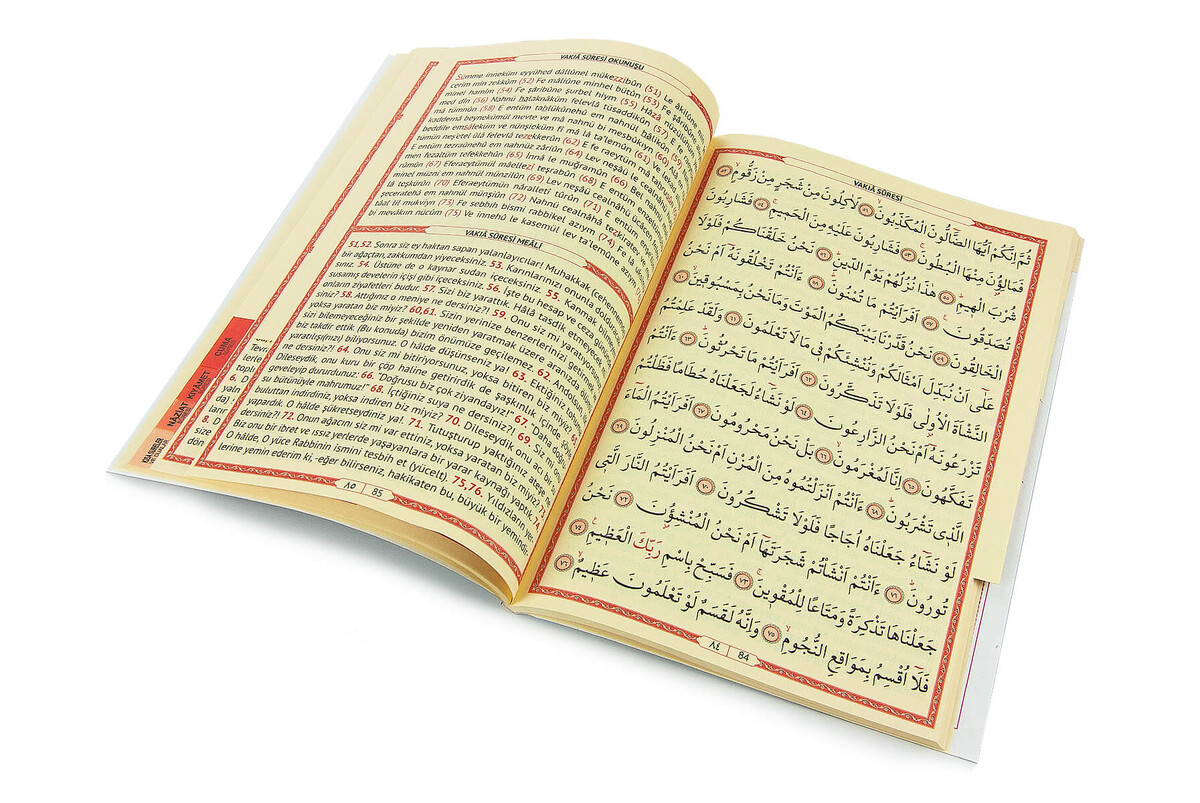 VAKIÂ SÛRESİ
ثُمَّ اِنَّكُمْ اَيُّهَا الضَّٓالُّونَ الْمُكَذِّبُونَ ٥١ لَاٰكِلُونَ مِنْ شَجَرٍ مِنْ زَقُّومٍ ٥٢
فَمَالِؤُنَ مِنْهَا الْبُطُونَ ٥٣ فَشَارِبُونَ عَلَيْهِ مِنَ الْحَمِيمِ ٥٤ فَشَارِبُونَ
شُرْبَ الْهِيمِ ٥٥ هٰذَا نُزُلُهُمْ يَوْمَ الدِّينِ ٥٦ نَحْنُ خَلَقْنَاكُمْ فَلَوْلَا
تُصَدِّقُونَ ٥٧ اَفَرَاَيْتُمْ مَا تُمْنُونَ ٥٨ ءَاَنْتُمْ تَخْلُقُونَهُٓ اَمْ نَحْنُ
الْخَالِقُونَ ٥٩ نَحْنُ قَدَّرْنَا بَيْنَكُمُ الْمَوْتَ وَمَا نَحْنُ بِمَسْبُوقِينَ ٦٠
عَلٰٓى اَنْ نُبَدِّلَ اَمْثَالَكُمْ وَنُنْشِئَكُمْ فِي مَا لَا تَعْلَمُونَ ٦١ وَلَقَدْ عَلِمْتُمُ
النَّشْاَةَ الْاُولٰى فَلَوْلَا تَذَكَّرُونَ ٦٢ اَفَرَاَيْتُمْ مَا تَحْرُثُونَ ٦٣ ءَاَنْتُمْ
تَزْرَعُونَهُٓ اَمْ نَحْنُ الزَّارِعُونَ ٦٤ لَوْ نَشَٓاءُ لَجَعَلْنَاهُ حُطَامًا فَظَلْتُمْ
تَفَكَّهُونَ ٦٥ اِنَّا لَمُغْرَمُونَ ٦٦ بَلْ نَحْنُ مَحْرُومُونَ ٦٧ اَفَرَاَيْتُمُ الْمَٓاءَ
الَّذِي تَشْرَبُونَ ٦٨ ءَاَنْتُمْ اَنْزَلْتُمُوهُ مِنَ الْمُزْنِ اَمْ نَحْنُ الْمُنْزِلُونَ ٦٩
لَوْ نَشَٓاءُ جَعَلْنَاهُ اُجَاجًا فَلَوْلَا تَشْكُرُونَ ٧٠ اَفَرَاَيْتُمُ النَّارَ الَّتِي
تُورُونَ ٧١ ءَاَنْتُمْ اَنْشَأْتُمْ شَجَرَتَهَٓا اَمْ نَحْنُ الْمُنْشِؤُنَ ٧٢ نَحْنُ
جَعَلْنَاهَا تَذْكِرَةً وَمَتَاعًا لِلْمُقْوِينَ ٧٣ فَسَبِّحْ بِاسْمِ رَبِّكَ الْعَظِيمِ ٧٤
فَلَٓا اُقْسِمُ بِمَوَاقِعِ النُّجُومِ ٧٥ وَاِنَّهُ لَقَسَمٌ لَوْ تَعْلَمُونَ عَظِيمٌ ٧٦
٨٤ 84
VAKIÂ SÛRESİ OKUNUŞU
Sümme inneküm eyyühed dâllûnel mükezzibûn (51) Le âkilûne
cerim min zekkûm (52) Fe mâliûne minhel bütûn (53) Fe şâribûne
minel hamîm (54) Fe şâribûne şurbel hîym (55) Hâzâ nüzülühüm
med dîn (56) Nahnü halaknâküm felevlâ tüsaddikûn (57) E fe
mâ tümnûn (58) E entüm tahlükûnehû em nahnül hâlikûn (59)
kaddernâ beynekümül mevte ve mâ nahnü bi mesbûkıyn (60) Alâ
beddile emsâleküm ve nünşieküm fi mâ lâ ta'lemûn (61) Ve lekad
tümün neş'etel ûlâ felevlâ tezekkerûn (62) E fe raeytüm mâ
E entüm tezraûnehû em nahnüz zâriûn (64) Lev neşâü le cealnâhü
men fezaltüm tefekkehûn (65) İnnâ le muğramûn (66) Bel nahnü
rûmûn (67) Eferaeytümül mâellezî teşrabûn (68) E entüm enzeltümûhü
minel müzni em nahnül münzilûn (69) Lev neşâü cealnâhü
lâ teşkürûn (70) Eferaeytümün nâralletî tûrûn (71) E entüm
şeceratehâ em nahnül münşiûn (72) Nahnü cealnâhâ tezkiraten
tâal lil mukvîyn (73) Fe sebbih bismi rabbikel azıym (74) Fe lâ
bi mevâkıın nücûm (75) Ve innehû le kasemül lev ta'lemûne azıym
VAKIÂ SÛRESİ MEÂLİ
51,52. Sonra siz ey haktan sapan yalanlayıcılar! Muhakkak (Cehennemde)
bir ağaçtan, zakkumdan yiyeceksiniz. 53. Karınlarınızı onunla dolduracak
sınız. 54. Üstüne de o kaynar sudan içeceksiniz. 55. Kanmak bilmeyen
susamış develerin içişi gibi içeceksiniz. 56. İşte bu hesap ve ceza
onların ziyafetleri budur. 57. Sizi biz yarattık. Hâlâ tasdik etmeyecek
siniz? 58. Attığınız o meniye ne dersiniz?! 59. Onu siz mi yaratıyorsunuz
yoksa yaratan biz miyiz? 60,61. Sizin yerinize benzerlerinizi getirmek
sizi bilemeyeceğiniz bir şekilde yeniden yaratmak üzere aranızda
biz takdir ettik. (Bu konuda) bizim önümüze geçilemez. 62. Andolsun,
yaratılışı(nızı) biliyorsunuz. O hâlde düşünseniz ya! 63. Ektiğiniz tohuma
ne dersiniz?! 64. Onu siz mi bitiriyorsunuz, yoksa bitiren biz miyiz? 65.
Dileseydik, onu kuru bir çöp haline getirirdik de şaşkınlık içinde şöyle
geveleyip dururdunuz: 66. "Doğrusu biz çok ziyandayız!" 67. "Daha doğrusu
su bütünüyle mahrumuz!" 68. İçtiğiniz suya ne dersiniz?! 69. Siz mi onu
buluttan indirdiniz, yoksa indiren biz miyiz? 70. Dileseydik, onu acı bir su
yapardık. O hâlde şükretseydiniz ya!. 71. Tutuşturup yaktığınız ateşe ne
dersiniz?! 72. Onun ağacını siz mi var ettiniz, yoksa yaratan biz miyiz? 73.
Biz onu bir ibret ve ıssız yerlerde yaşayanlara bir yarar kaynağı yaptık. 74.
O hâlde, O yüce Rabbinin ismini tesbih et (yücelt). 75,76. Yıldızların yer
lerine yemin ederim ki, -eğer bilirseniz, hakikaten bu, büyük bir yemindir.
٨٥ 85
CUMA
KIYÂMET
NÂZİAT